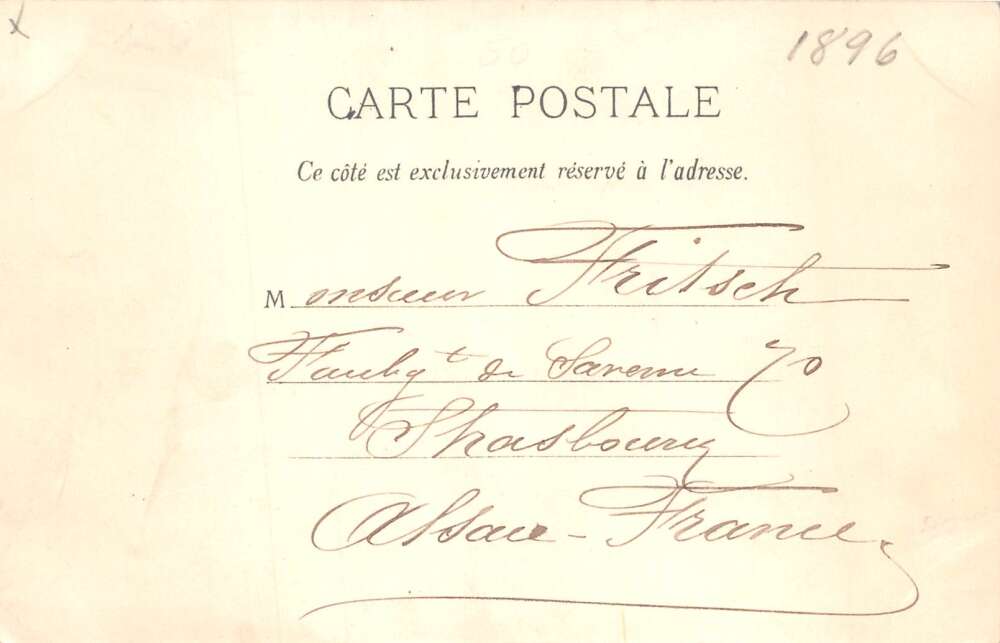 1896
CARTE POSTALE
Ce côté est exclusivement réservé à l'adresse.
Monsieur Fritsch
Faubgt de Saverne 70
Strasbourg
Alsace - France